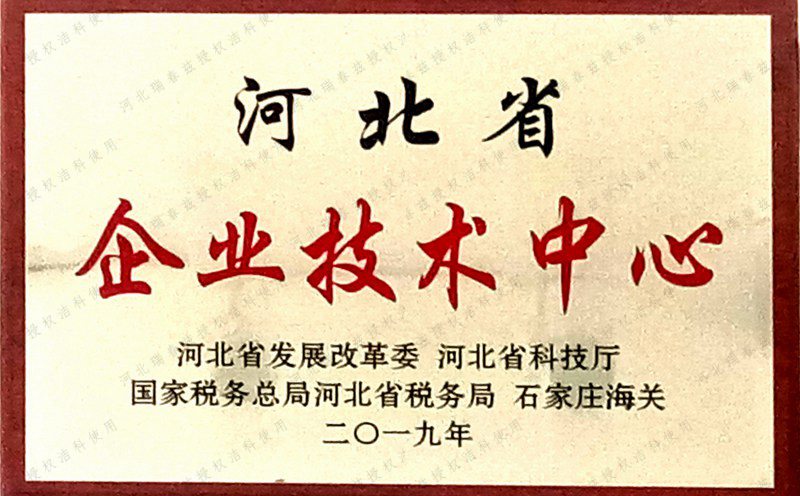 河北省
企业技术中心
河北省发展改革委 河北省科技厅
国家税务总局河北省税务局 石家庄海关
二〇一九年
河北瑞春兹授权洁科使用